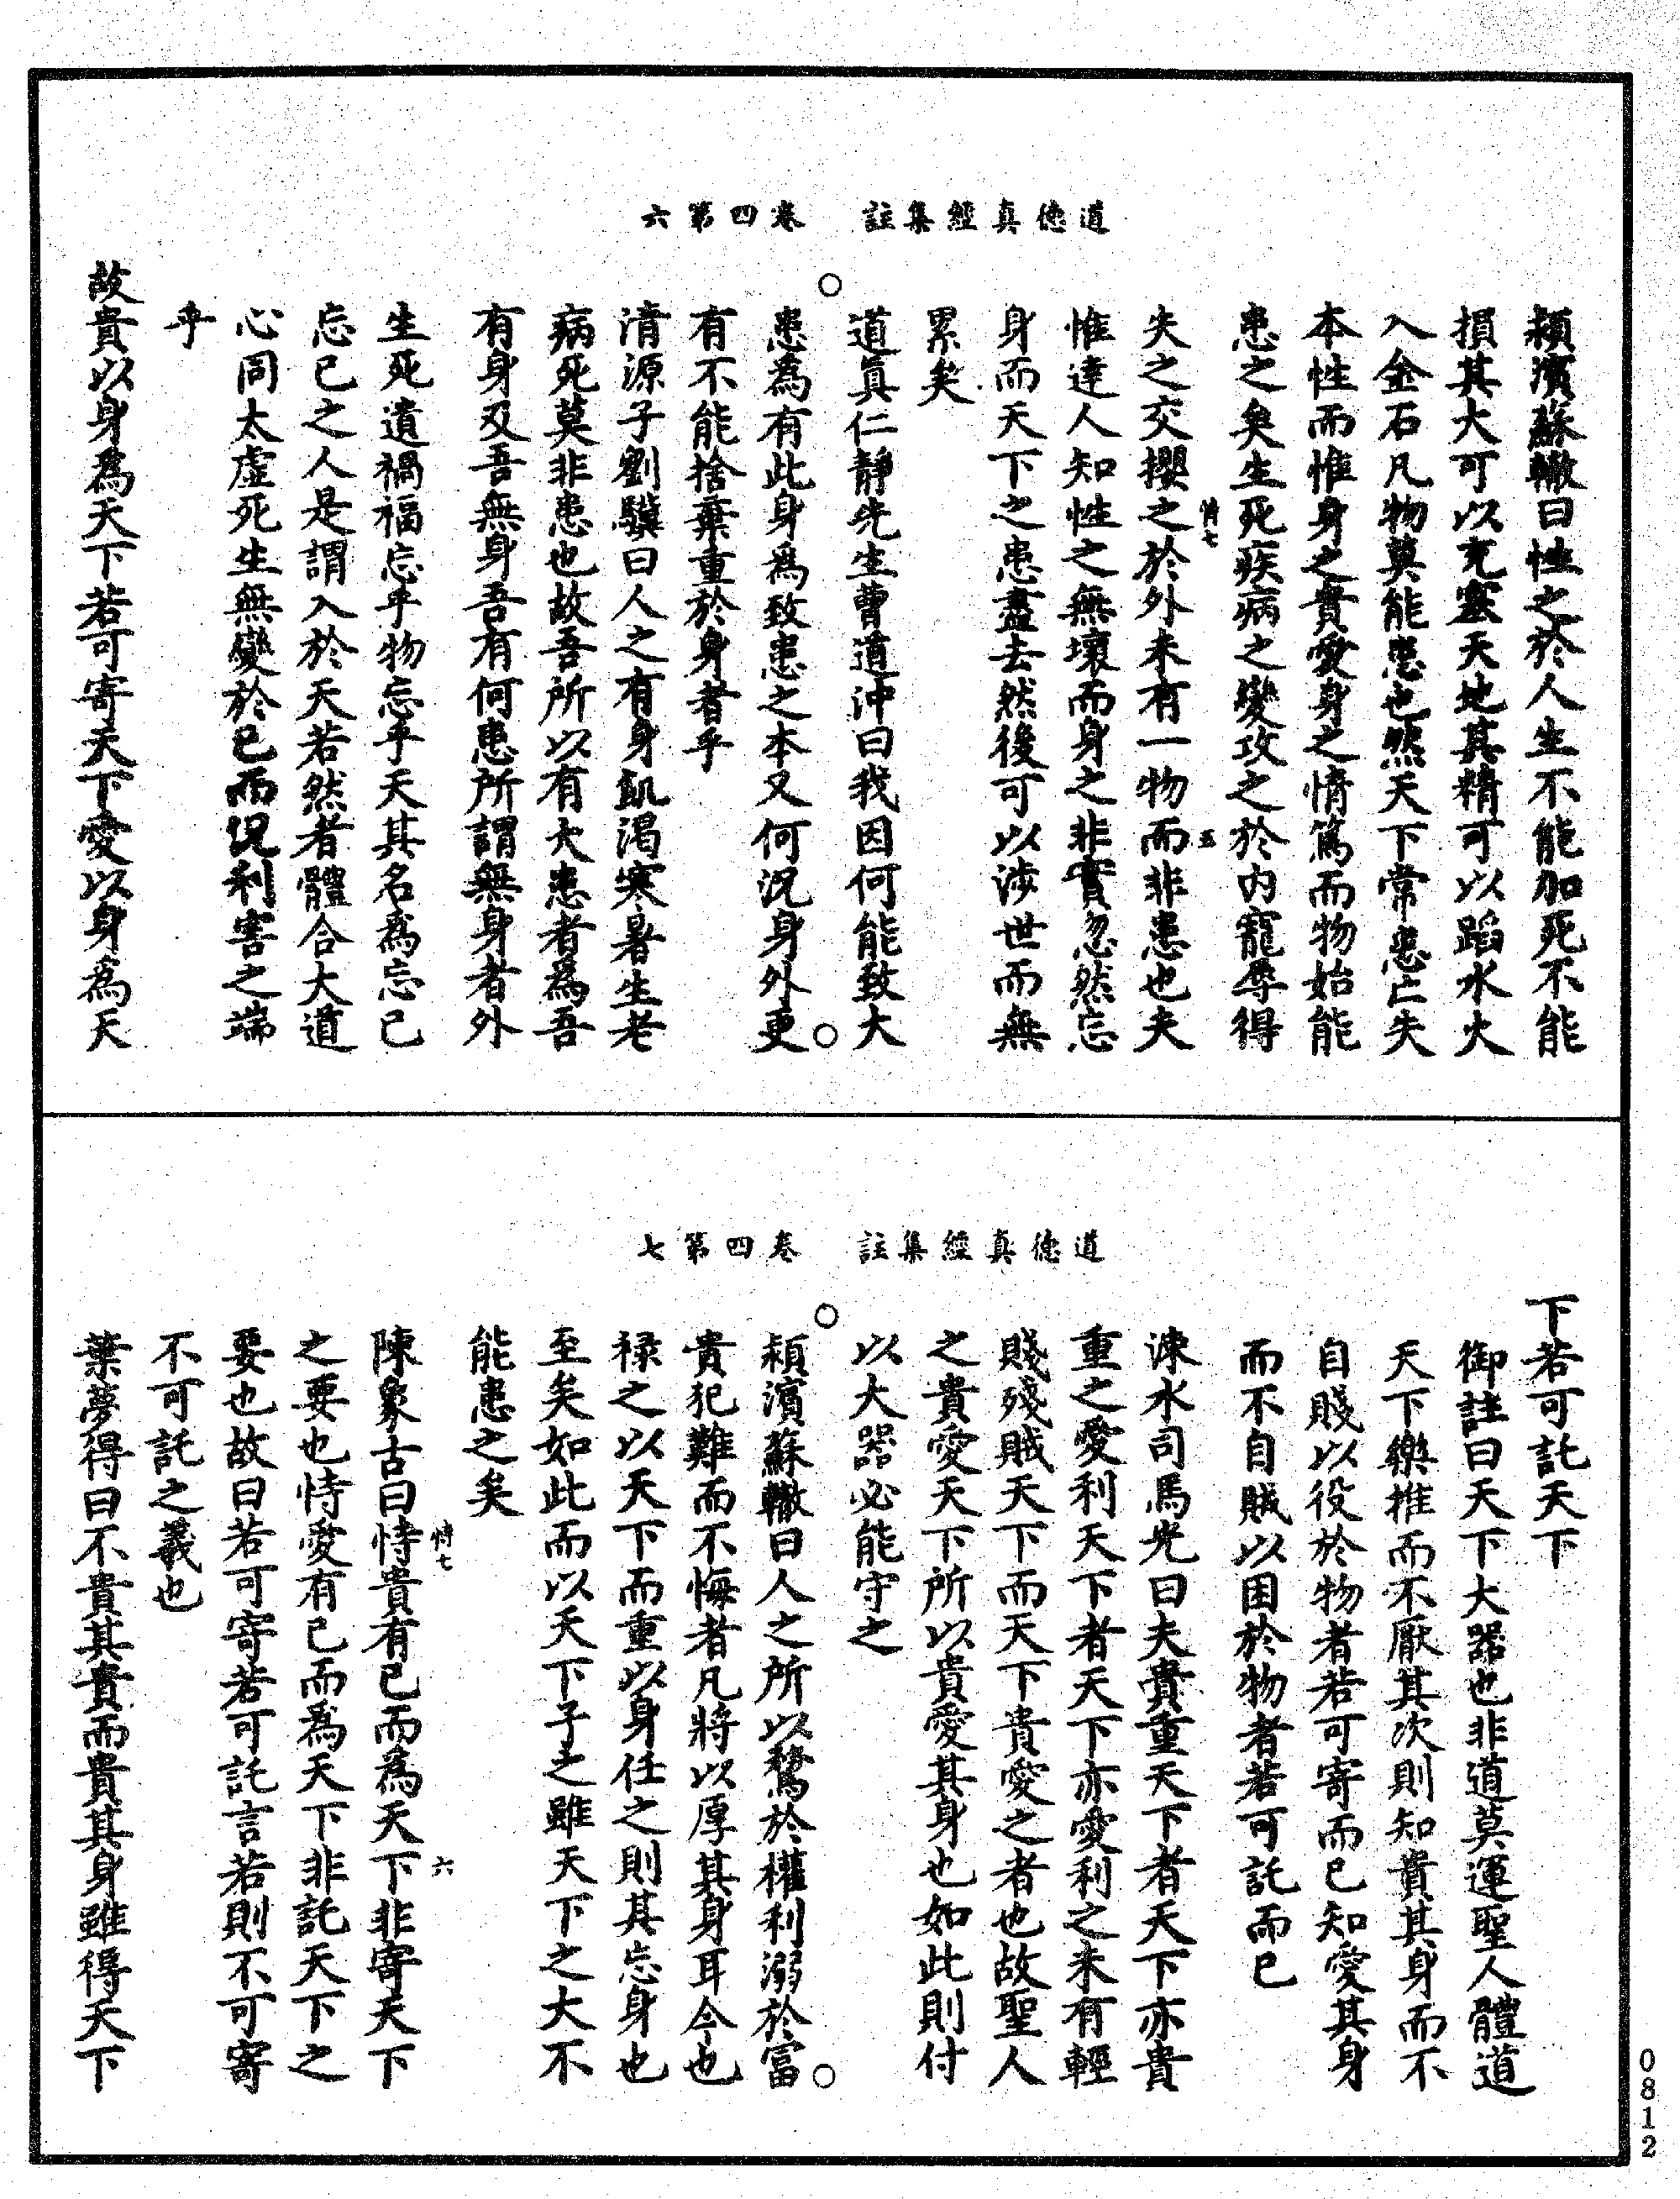 道德真經集註　卷四第六
潁濱蘇轍曰性之於人生不能加死不能
損其大可以充塞天地其精可以蹈水火
入金石凡物莫能患也然天下常患亡失
本性而惟身之貴愛身之情篤而物始能
患之矣生死疾病之變攻之於內寵辱得
失之交攖之於外未有一物而非患也夫
惟達人知性之無壞而身之非實忽然忘
身而天下之患盡去然後可以涉世而無
累矣
道真仁靜先生曹道沖曰我因何能致大
患為有此身為致患之本又何況身外更
有不能捨棄重於身者乎
清源子劉驥曰人之有身飢渴寒暑生老
病死莫非患也故吾所以有大患者為吾
有身及吾無身吾有何患所謂無身者外
生死遺禍福忘乎物忘乎天其名為忘己
忘己之人是謂入於天若然者體合大道
心同太虛死生無變於己而況利害之端
乎
故貴以身為天下若可寄天下愛以身為天
道德真經集註　卷四第七
下若可託天下
御註曰天下大器也非道莫運聖人體道
天下樂推而不厭其次則知貴其身而不
自賤以役於物者若可寄而已知愛其身
而不自賊以困於物者若可託而已
涑水司馬光曰夫貴重天下者天下亦貴
重之愛利天下者天下亦愛利之未有輕
賤殘賊天下而天下貴愛之者也故聖人
之貴愛天下所以貴愛其身也如此則付
以大器必能守之
潁濱蘇轍曰人之所以騖於權利溺於富
貴犯難而不悔者凡將以厚其身耳今也
祿之以天下而重以身任之則其忘身也
至矣如此而以天下予之雖天下之大不
能患之矣
陳象古曰恃貴有己而為天下非寄天下
之要也恃愛有己而為天下非託天下之
要也故曰若可寄若可託言若則不可寄
不可託之義也
葉夢得曰不貴其貴而貴其身雖得天下
0812